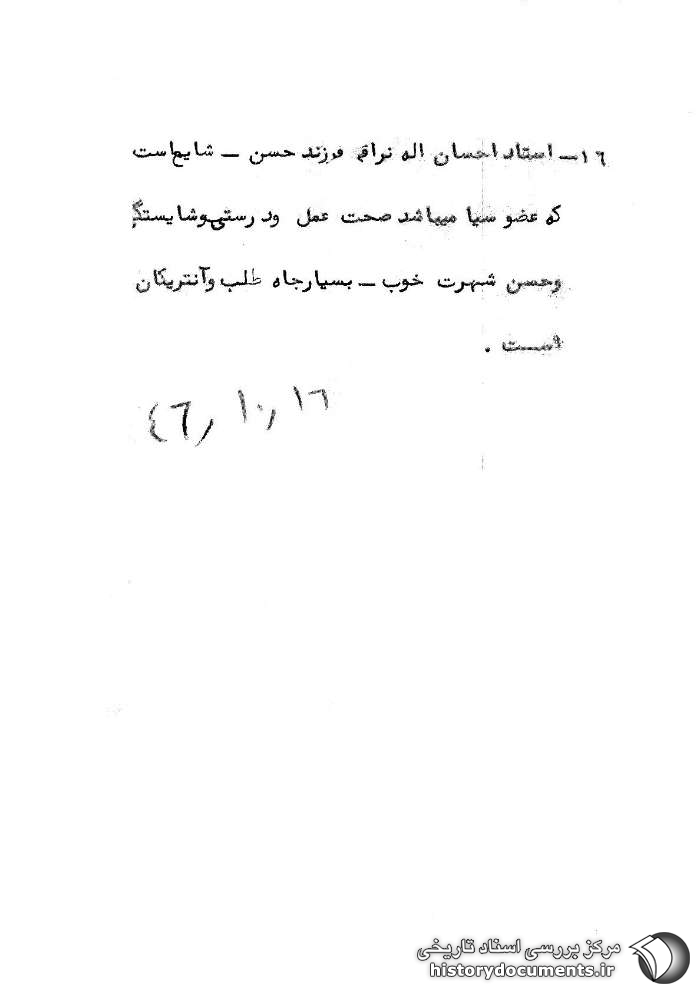 ۱۶ــ استاد احسان اله نراقی فرزند حسن ــ شایع است
که عضو سیا میباشد صحت عمل ودرستی وشایستگی
وحسن شهرت خوب ــ بسیار جاه طلب وآنتریکان
است .
۴۶٫۱۰٫۱۶
مرکز بررسی اسناد تاریخی
historydocuments.ir